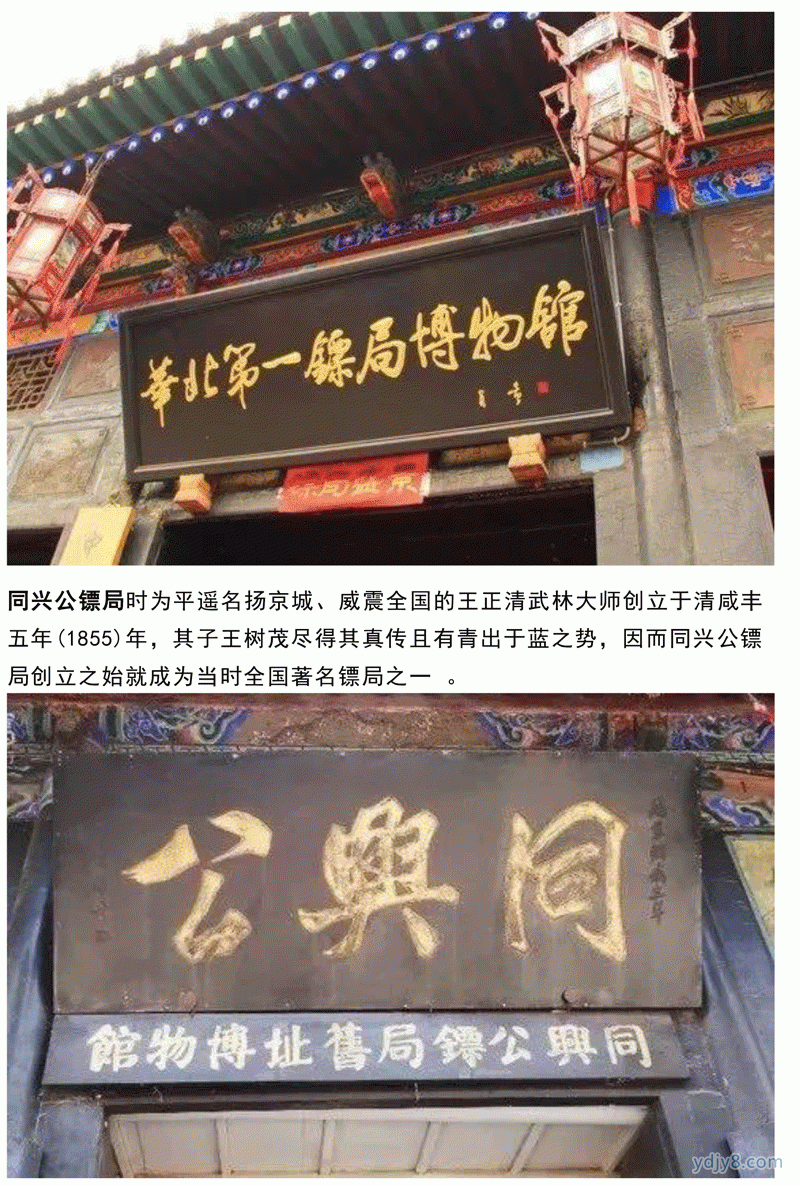 華北第一鏢局博物館
同兴公镖局时为平遥名扬京城、威震全国的王正清武林大师创立于清咸丰
五年(1855)年，其子王树茂尽得其真传且有青出于蓝之势，因而同兴公镖
局创立之始就成为当时全国著名镖局之一 。
同興公
同興公鏢局舊址博物館
ydjy8.com